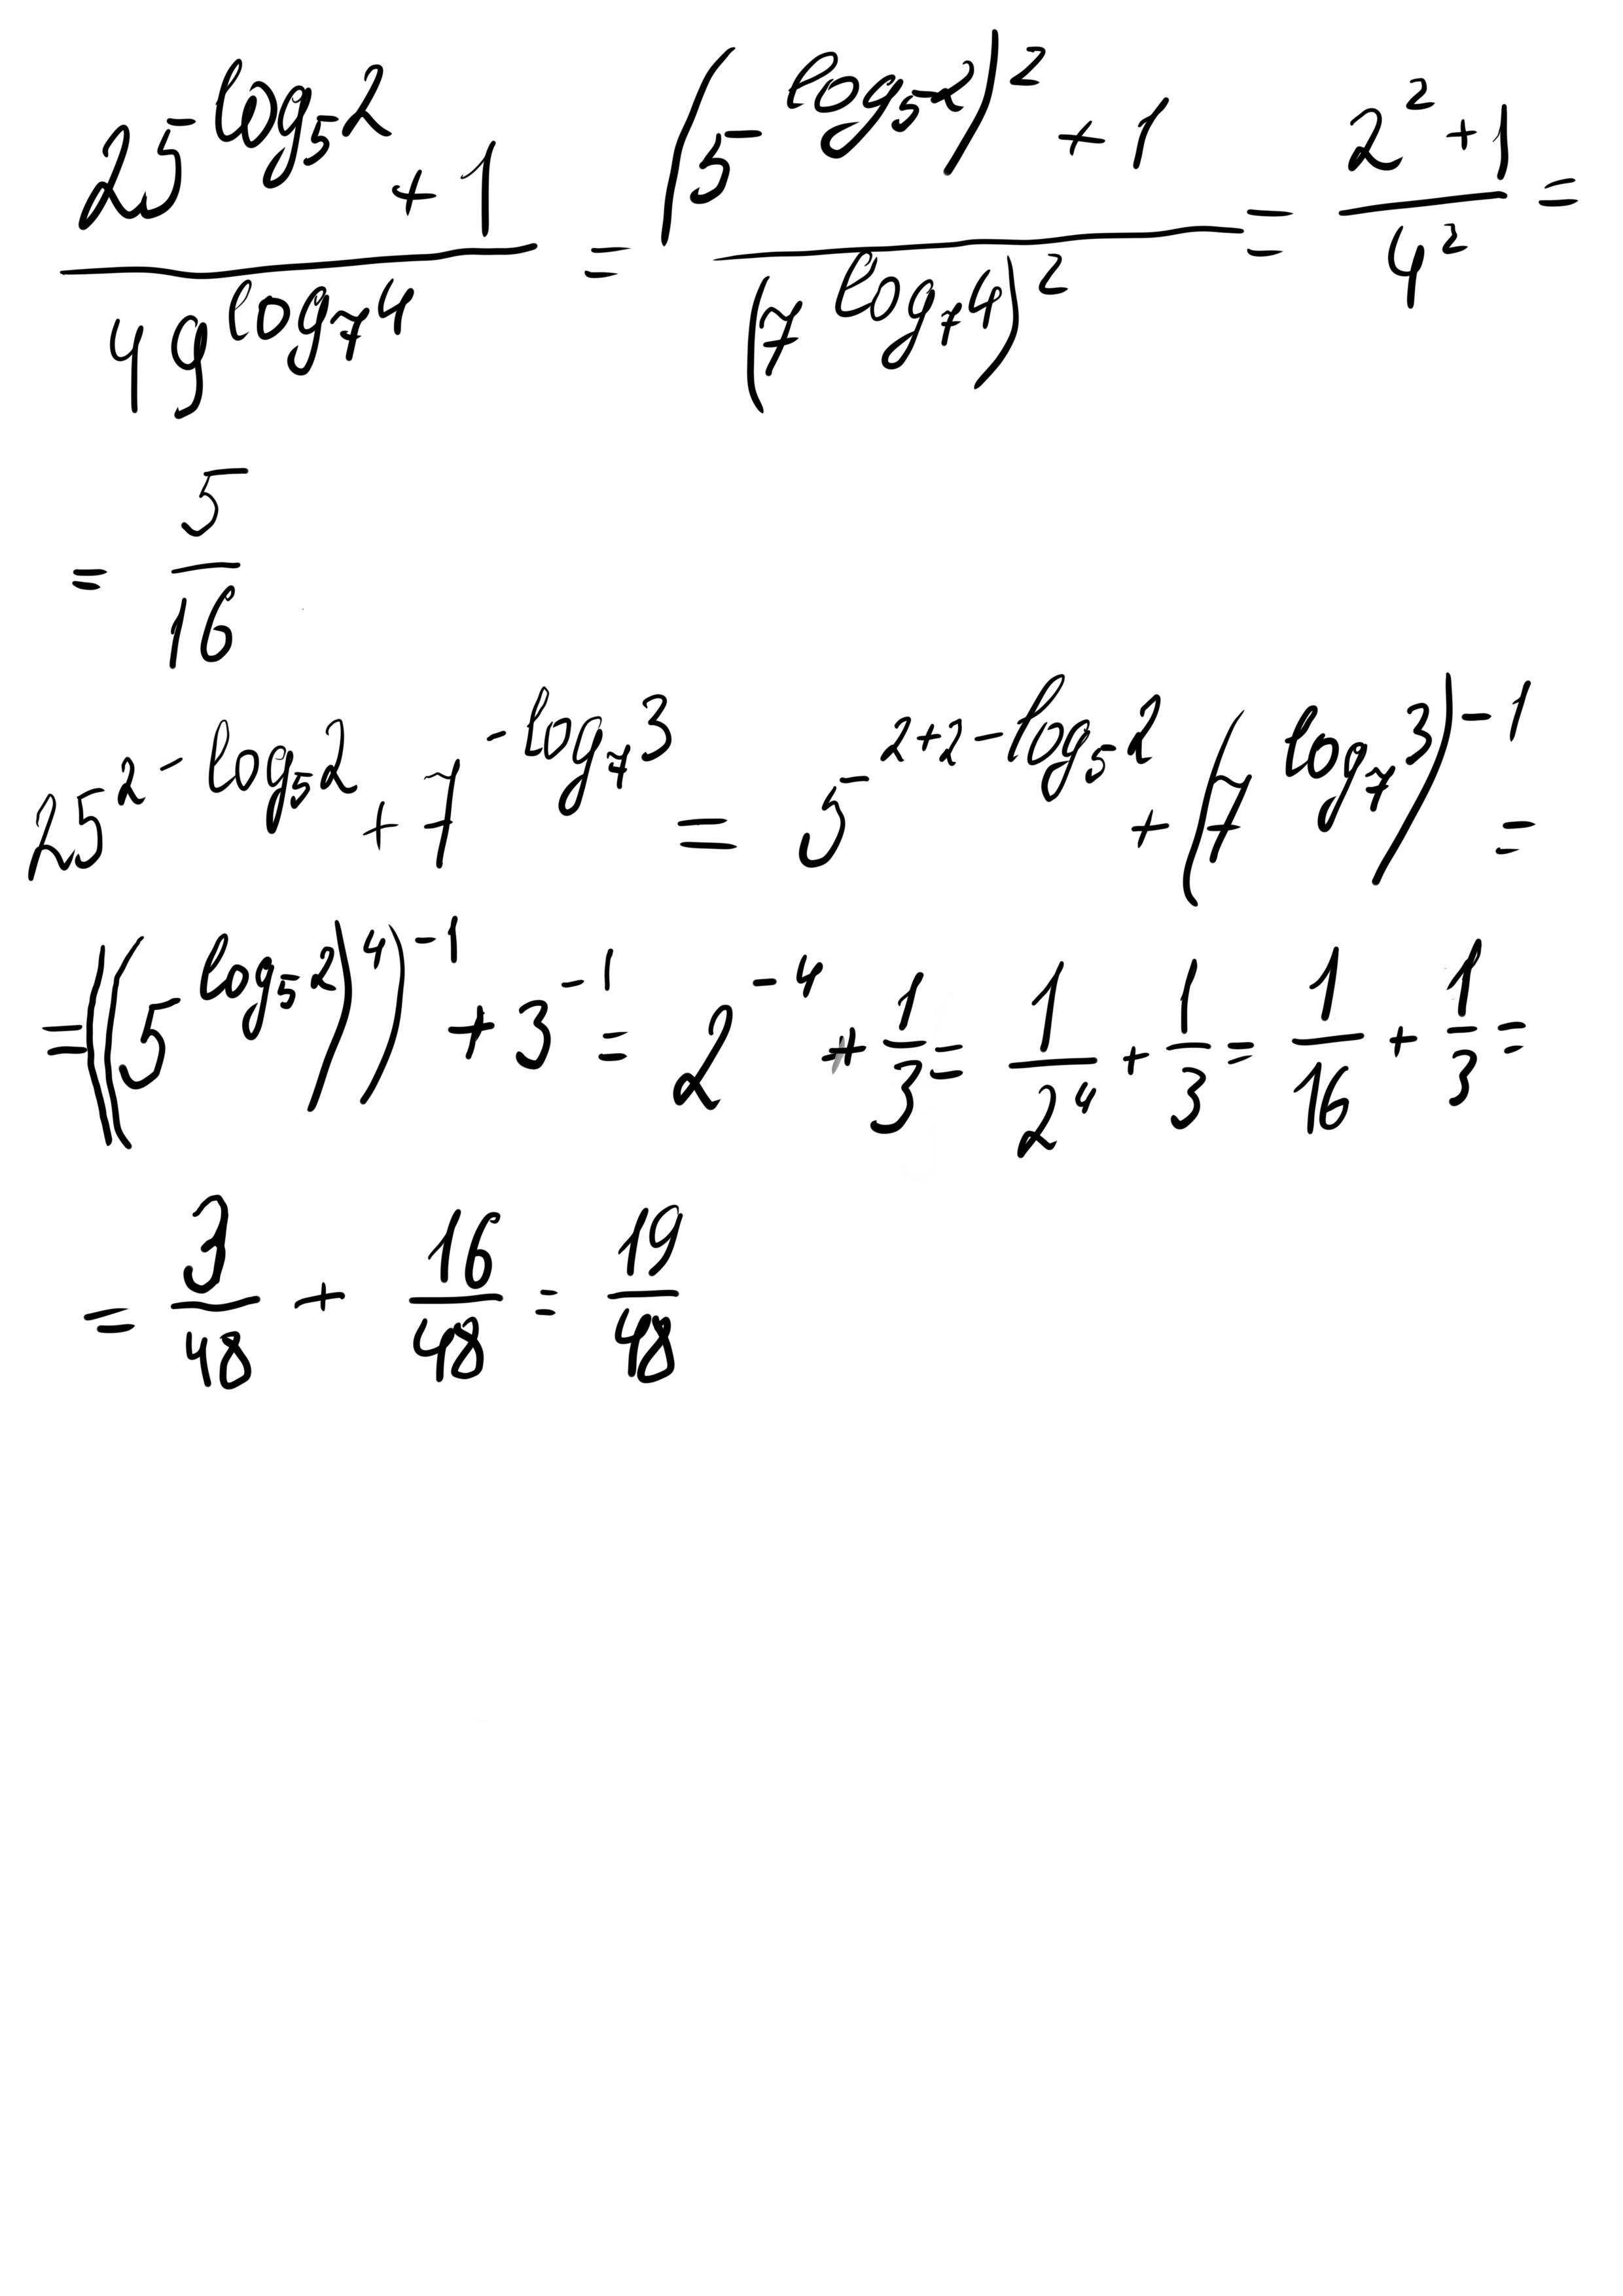 (25^(log_5 2) + 1) / (49^(log_7 4)) = ((5^(log_5 2))^2 + 1) / ((7^(log_7 4))^2) = (2^2 + 1) / (4^2) =
= 5/16
25^(2 - log_5 2) + 7^(-log_7 3) = 5^(2 · 2 - log_5 2) + (7^(log_7 3))^(-1) =
= ((5^(log_5 2))^4)^(-1) + 3^(-1) = 2^(-4) + 1/3 = 1/2^4 + 1/3 = 1/16 + 1/3 =
= 3/48 + 16/48 = 19/48